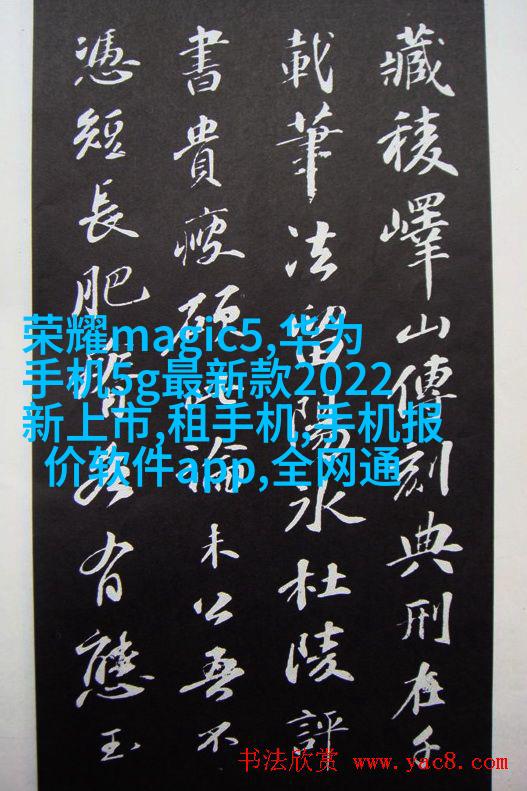 藏稜嶧山傳刻典刑在千
載筆法留陽冰杜陵評
書貴瘦硬此論未公吾不
憑短長肥瘠各有態玉
荣耀magic5,华为
手机5g最新款2022
新上市,租手机,手机报
价软件app,全网通
书法欣赏 www.yac8.com